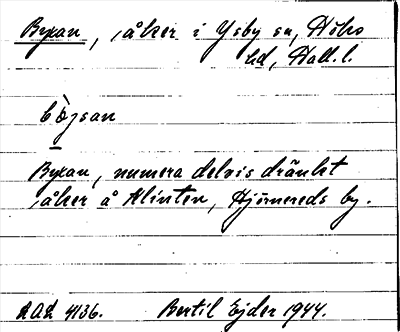 Byxan, åker i Ysby sn, Höks
hd, Hall. l.
bòjsan
Byxan, numera delvis dränkt
åker å Klinten, Hjörnereds by.
AAL 4136. Bertil Ejder 1944.